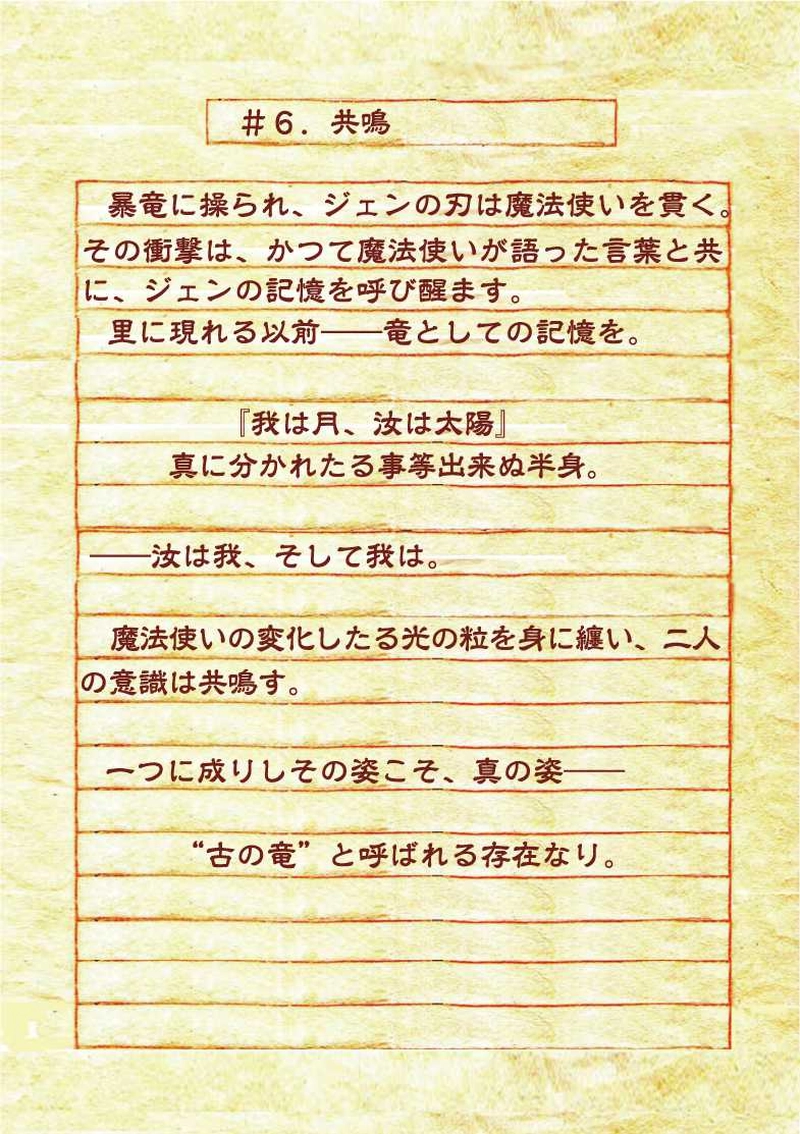 ＃６．共鳴
暴竜に操られ、ジェンの刃は魔法使いを貫く。
その衝撃は、かつて魔法使いが語った言葉と共
に、ジェンの記憶を呼び醒ます。
里に現れる以前――竜としての記憶を。
『我は月、汝は太陽』
真に分かれたる事等出来ぬ半身。
――汝は我、そして我は。
魔法使いの変化したる光の粒を身に纏い、二人
の意識は共鳴す。
一つに成りしその姿こそ、真の姿――
“古の竜”と呼ばれる存在なり。